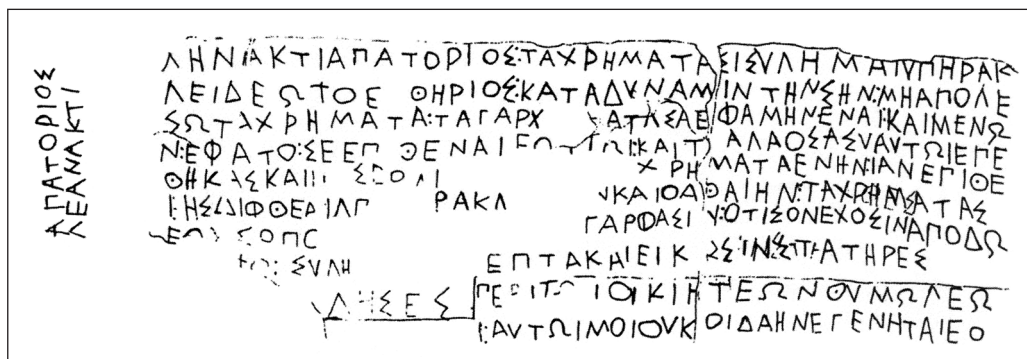 ΑΠΑΤΟΡΙΟΣ
ΛΕΑΝΑΚΤΙ
ΛΗΝΑΚΤΙΑΠΑΤΟΡΙΟΣ:ΤΑΧΡΗΜΑΤΑΣΙΣΥΛΗΜΑΙΥΠΗΡΑΚ
ΛΕΙΔΕΩΤΟΕ ΘΗΡΙΟΣ:ΚΑΤΑΔΥΝΑΜΙΝΤΗΝΣΗΝ:ΜΗΑΠΟΛΕ
ΣΩΤΑΧΡΗΜΑΤΑ:ΤΑΓΑΡΧ ΑΤΑΣΑΕΦΑΜΗΝΕΝΑΙ:ΚΑΙΜΕΝΩ
Ν:ΕΦΑΤΟ:ΣΕΕΠ ΘΕΝΑΙΕΩ ΤΩΙ:ΚΑΙΤ ΑΛΑΟΣΑΣΥΝΑΥΤΩΙΕΠΕ
ΘΗΚΑΣΚΑΙ ΣΕΟΛΙ ΧΡΗΜΑΤΑΕΝΗΝΙΑΝΕΓΙΘΕ
Ι:ΗΣΔΙΦΘΕΡΙΑΓ ΡΑΚΛ ΥΚΑΙΟΑΘΑΙΗΝ:ΤΑΧΡΗΜΑΤΑΣ
ΕΩ ΣΟΠΣ ΓΑΡΦΑΣΙΥ:ΟΤΙΣΟΝΕΧΟΣΙΝΑΠΟΔΩ
ΣΥΛΗ ΕΠΤΑΚΑΙΕΙΚΟΣΙΝ:ΣΠΑΤΗΡΕΣ
ΔΗΣΕΣ ΠΕΡΙΤΟΙΟΙΚΙΗΤΕΩΝΟΥΜΩΛΕΩ
ΑΥΤΩΙΜΟΙΟΥΚΟΙΔΑΗΝΕΓΕΝΗΤΑΙΕΟ